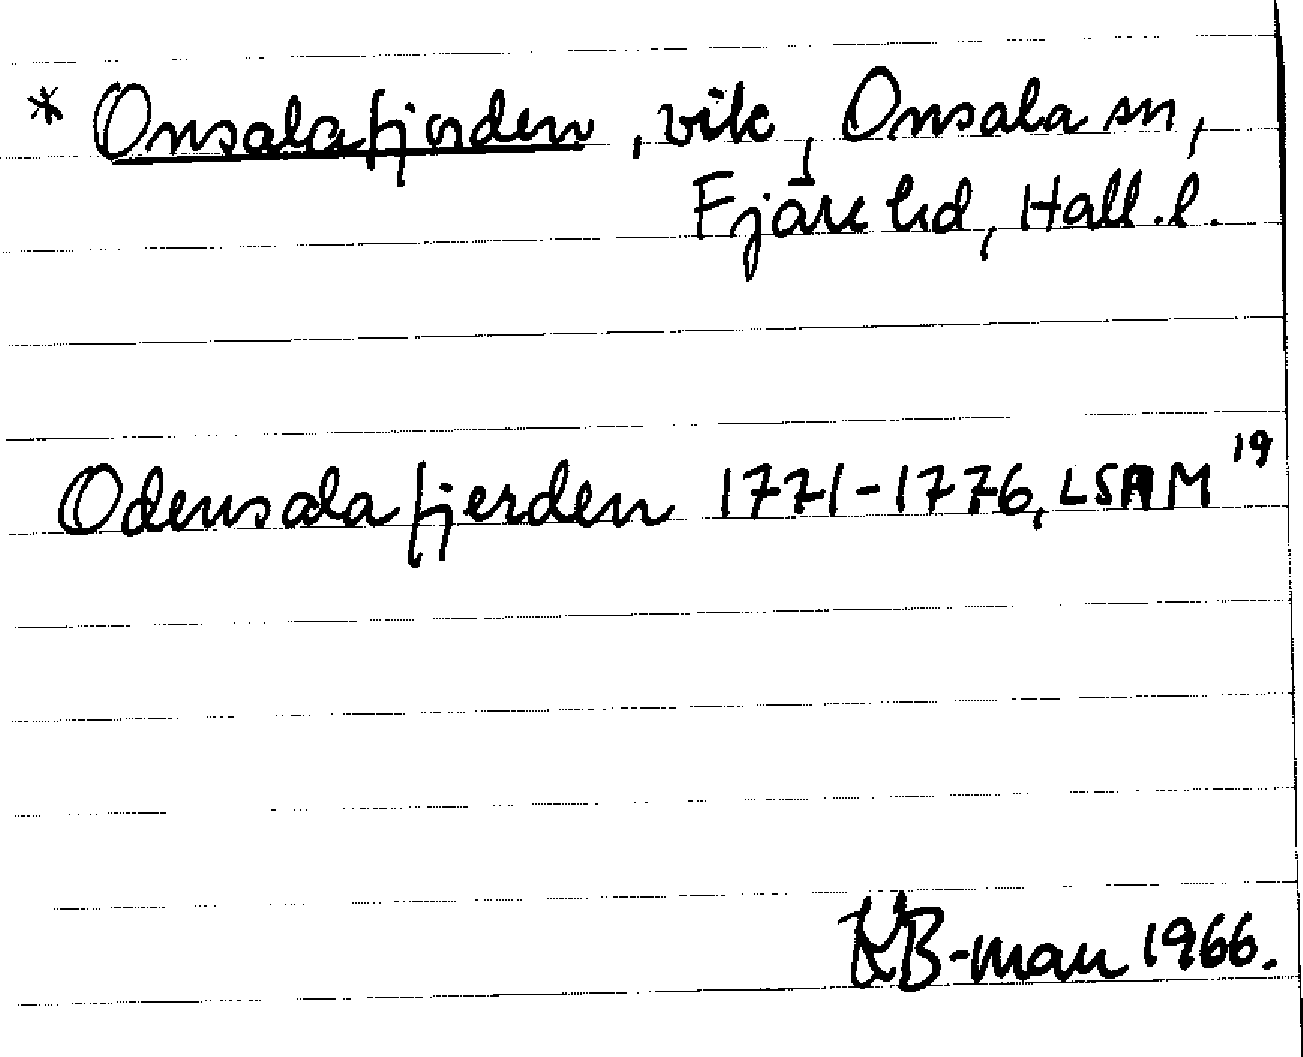 * Onsalafjorden, vik, Onsala sn,
Fjäre hd, Hall.l.
Odensalafjerden 1771-1776, LSAM 19
KB-man 1966.